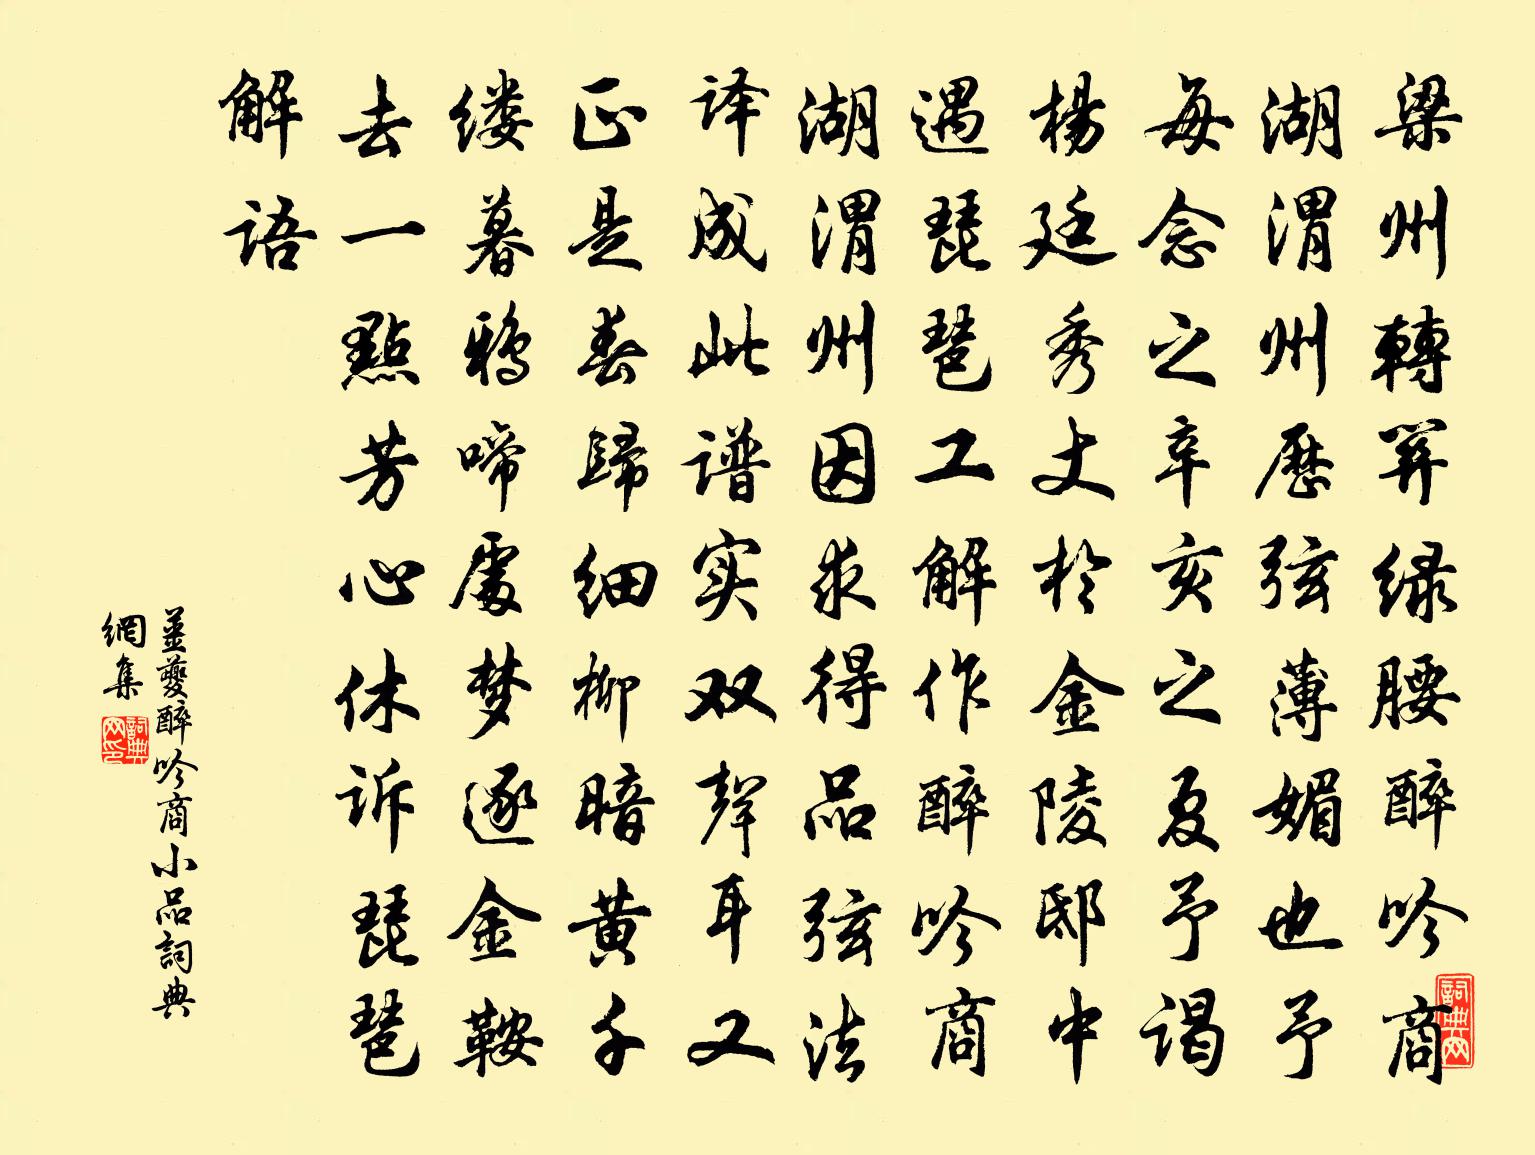 梁州轉關绿腰醉吟商
湖渭州歷弦薄媚也予
每念之辛亥之夏予谒
楊廷秀丈於金陵邸中
遇琵琶工解作醉吟商
湖渭州因求得品弦法
译成此谱实双聲耳又
正是春歸细柳暗黄千
缕暮鸦啼處梦逐金鞍
去一點芳心休诉琵琶
解语
姜夔醉吟商小品詞典
網集
詞典网
詞典网印